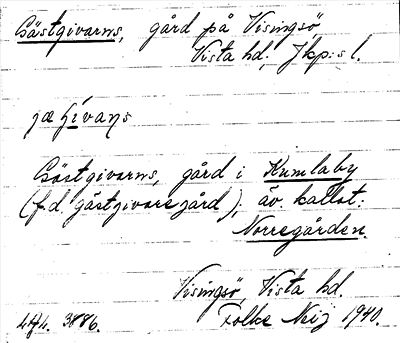 Gästgivarns, gård på Visingsö
Vista hd; Jkp:s l.
Gästgivarns, gård i Kumlaby
(f.d. gästgivaregård); äv. kallat:
Norregården.
Visingsö, Vista hd.
3886. Folke Neij 1940.